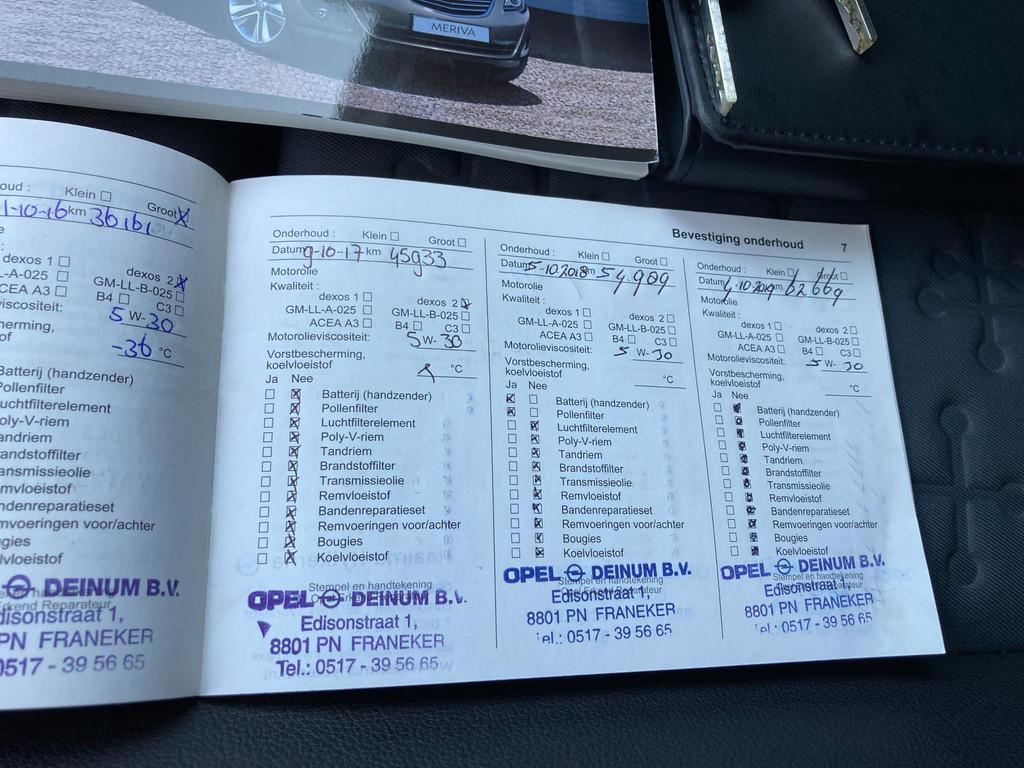 MERIVA
oud : Klein Groot
1-10-16 km 36161
dexos 1 dexos 2
LL-A-025 GM-LL-B-025
CEA A3 B4 C3
viscositeit: 5 W-30
herming,
of -36 °C
Batterij (handzender)
Pollenfilter
uchtfilterelement
oly-V-riem
andriem
randstoffilter
ansmissieolie
mvloeistof
ndenreparatieset
mvoeringen voor/achter
gies
lvloeistof
DEINUM B.V.
rkend Reparateur
disonstraat 1,
PN FRANEKER
0517 - 39 56 65
Bevestiging onderhoud 7
Onderhoud : Klein Groot
Datum 9-10-17 km 45933
Motorolie
Kwaliteit :
dexos 1 dexos 2
GM-LL-A-025 GM-LL-B-025
ACEA A3 B4 C3
Motorolieviscositeit: 5 W-30
Vorstbescherming,
koelvloeistof °C
Ja Nee
Batterij (handzender)
Pollenfilter
Luchtfilterelement
Poly-V-riem
Tandriem
Brandstoffilter
Transmissieolie
Remvloeistof
Bandenreparatieset
Remvoeringen voor/achter
Bougies
Koelvloeistof
Stempel en handtekening
OPEL DEINUM B.V.
Edisonstraat 1,
8801 PN FRANEKER
Tel.: 0517 - 39 56 65
Onderhoud : Klein Groot
Datum 5-10-2018 km 54909
Motorolie
Kwaliteit :
dexos 1 dexos 2
GM-LL-A-025 GM-LL-B-025
ACEA A3 B4 C3
Motorolieviscositeit: 5 W-30
Vorstbescherming,
koelvloeistof °C
Ja Nee
Batterij (handzender)
Pollenfilter
Luchtfilterelement
Poly-V-riem
Tandriem
Brandstoffilter
Transmissieolie
Remvloeistof
Bandenreparatieset
Remvoeringen voor/achter
Bougies
Koelvloeistof
OPEL DEINUM B.V.
Stempel en handtekening
Edisonstraat 1,
8801 PN FRANEKER
Tel.: 0517 - 39 56 65
Onderhoud : Klein Groot
Datum 4-10-2019 km 62669
Motorolie
Kwaliteit :
dexos 1 dexos 2
GM-LL-A-025 GM-LL-B-025
ACEA A3 B4 C3
Motorolieviscositeit: 5 W- 30
Vorstbescherming,
koelvloeistof °C
Ja Nee
Batterij (handzender)
Pollenfilter
Luchtfilterelement
Poly-V-riem
Tandriem
Brandstoffilter
Transmissieolie
Remvloeistof
Bandenreparatieset
Remvoeringen voor/achter
Bougies
Koelvloeistof
OPEL DEINUM B.V.
Stempel en handtekening
Edisonstraat 1,
8801 PN FRANEKER
Tel.: 0517 - 39 56 65